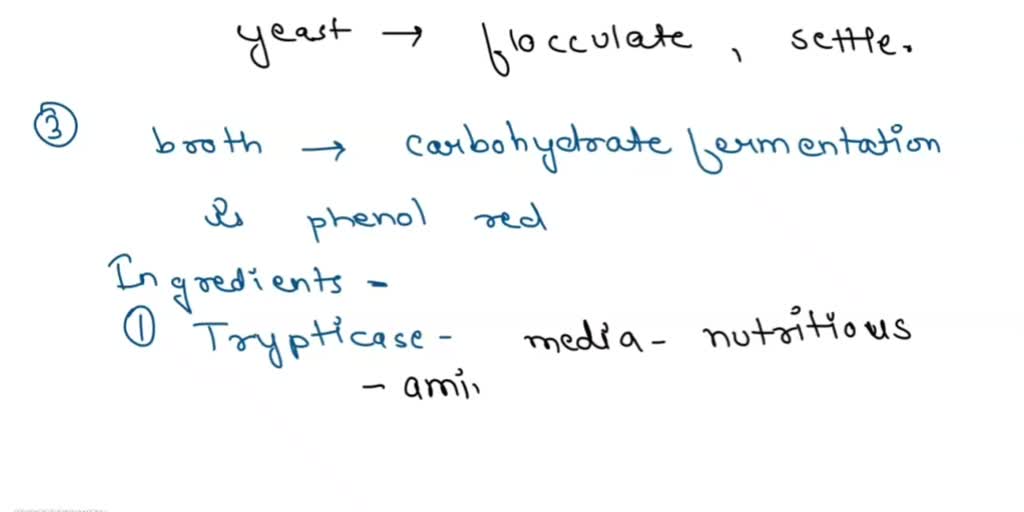 yeast → flocculate, settle.
③ broth → carbohydrate fermentation
is phenol red
Ingredients -
① Trypticase - media - nutritious
- ami